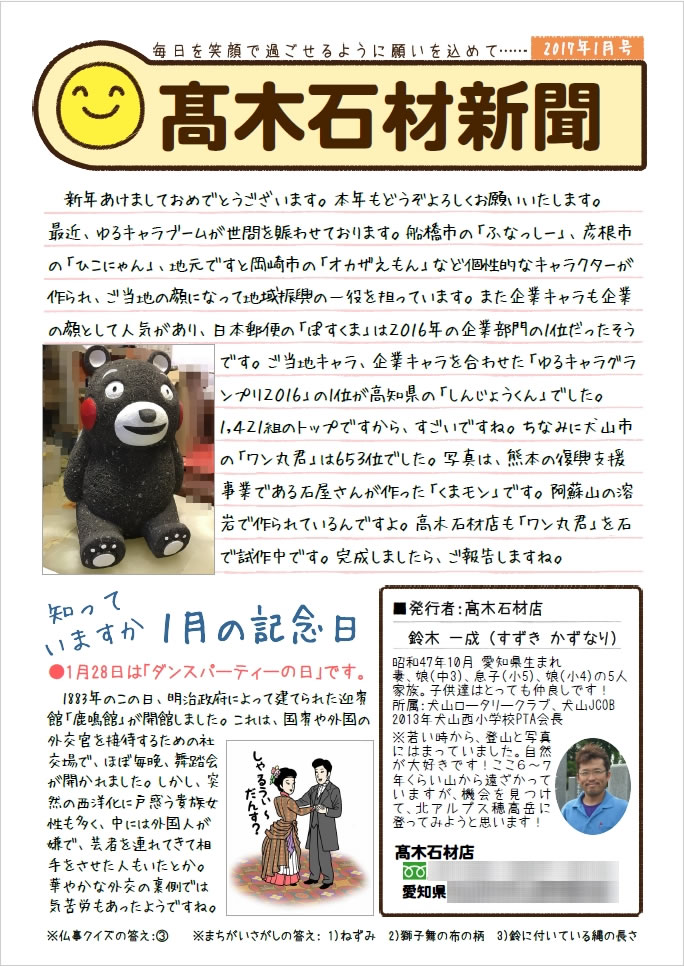 毎日を笑顔で過ごせるように願いを込めて……
2017年1月号
髙木石材新聞
新年あけましておめでとうございます。本年もどうぞよろしくお願いいたします。
最近、ゆるキャラブームが世間を賑わせております。船橋市の「ふなっしー」、彦根市
の「ひこにゃん」、地元ですと岡崎市の「オカザえもん」など個性的なキャラクターが
作られ、ご当地の顔になって地域振興の一役を担っています。また企業キャラも企業
の顔として人気があり、日本郵便の「ぽすくま」は2016年の企業部門の1位だったそう
です。ご当地キャラ、企業キャラを合わせた「ゆるキャラグラ
ンプリ2016」の1位が高知県の「しんじょうくん」でした。
1,421組のトップですから、すごいですね。ちなみに犬山市
の「ワン丸君」は653位でした。写真は、熊本の復興支援
事業である石屋さんが作った「くまモン」です。阿蘇山の溶
岩で作られているんですよ。髙木石材店も「ワン丸君」を石
で試作中です。完成しましたら、ご報告しますね。
知って
いますか
1月の記念日
●1月28日は「ダンスパーティーの日」です。
1883年のこの日、明治政府によって建てられた迎賓
館「鹿鳴館」が開館しました。これは、国賓や外国の
外交官を接待するための社
交場で、ほぼ毎晩、舞踏会
が開かれました。しかし、突
然の西洋化に戸惑う貴族女
性も多く、中には外国人が
嫌で、芸者を連れてきて相
手をさせた人もいたとか。
華やかな外交の裏側では
気苦労もあったようですね。
しゃるうぃ〜
だんす?
■発行者:髙木石材店
鈴木 一成 (すずき かずなり)
昭和47年10月 愛知県生まれ
妻、娘(中3)、息子(小5)、娘(小4)の5人
家族。子供達はとっても仲良しです!
所属:犬山ロータリークラブ、犬山JCOB
2013年犬山西小学校PTA会長
※若い時から、登山と写真
にはまっていました。自然
が大好きです!ここ6〜7
年くらい山から遠ざかって
いますが、機会を見つけ
て、北アルプス穂高岳に
登ってみようと思います!
髙木石材店
愛知県
※仏事クイズの答え:③ ※まちがいさがしの答え: 1)ねずみ 2)獅子舞の布の柄 3)鈴に付いている縄の長さ